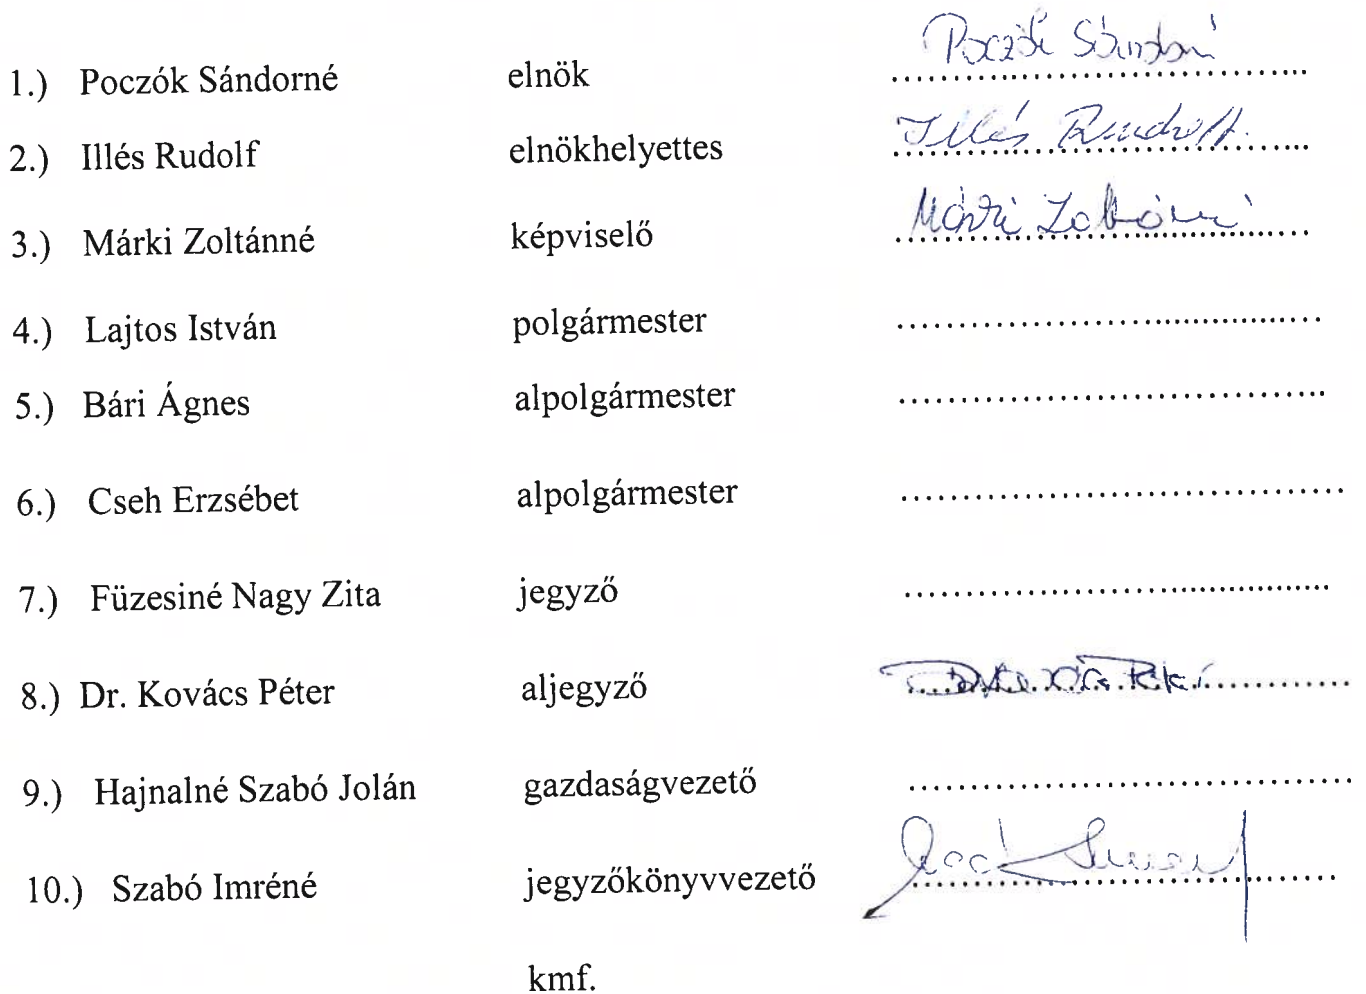 1.) Poczók Sándorné elnök Poczók Sándorné
2.) Illés Rudolf elnökhelyettes Illés Rudolf.
3.) Márki Zoltánné képviselő Márki Zoltánné
4.) Lajtos István polgármester ....................................
5.) Bári Ágnes alpolgármester ....................................
6.) Cseh Erzsébet alpolgármester ....................................
7.) Füzesiné Nagy Zita jegyző ....................................
8.) Dr. Kovács Péter aljegyző
9.) Hajnalné Szabó Jolán gazdaságvezető ....................................
10.) Szabó Imréné jegyzőkönyvvezető
kmf.